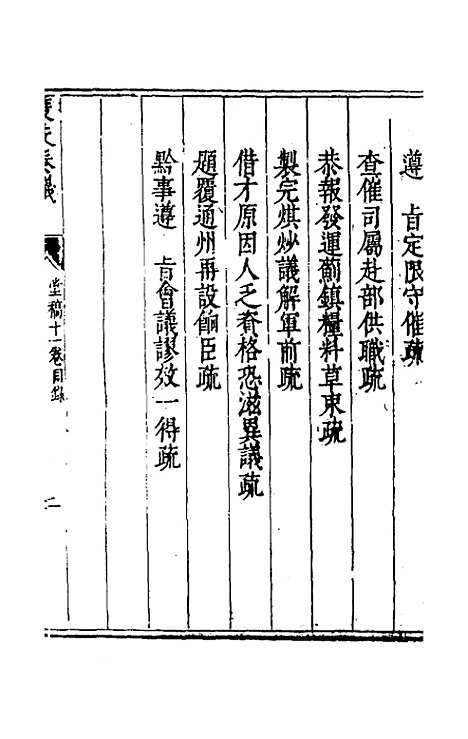 遵　旨定限守催疏
查催司屬赴部供職疏
恭報發運薊鎮糧料草束疏
製完烘炒議解軍前疏
借才原因人乏脊格恐滋異議疏
題覆通州再設餉臣疏
黔事遵　旨會議謬效一得疏
堂稿十一卷目錄
二